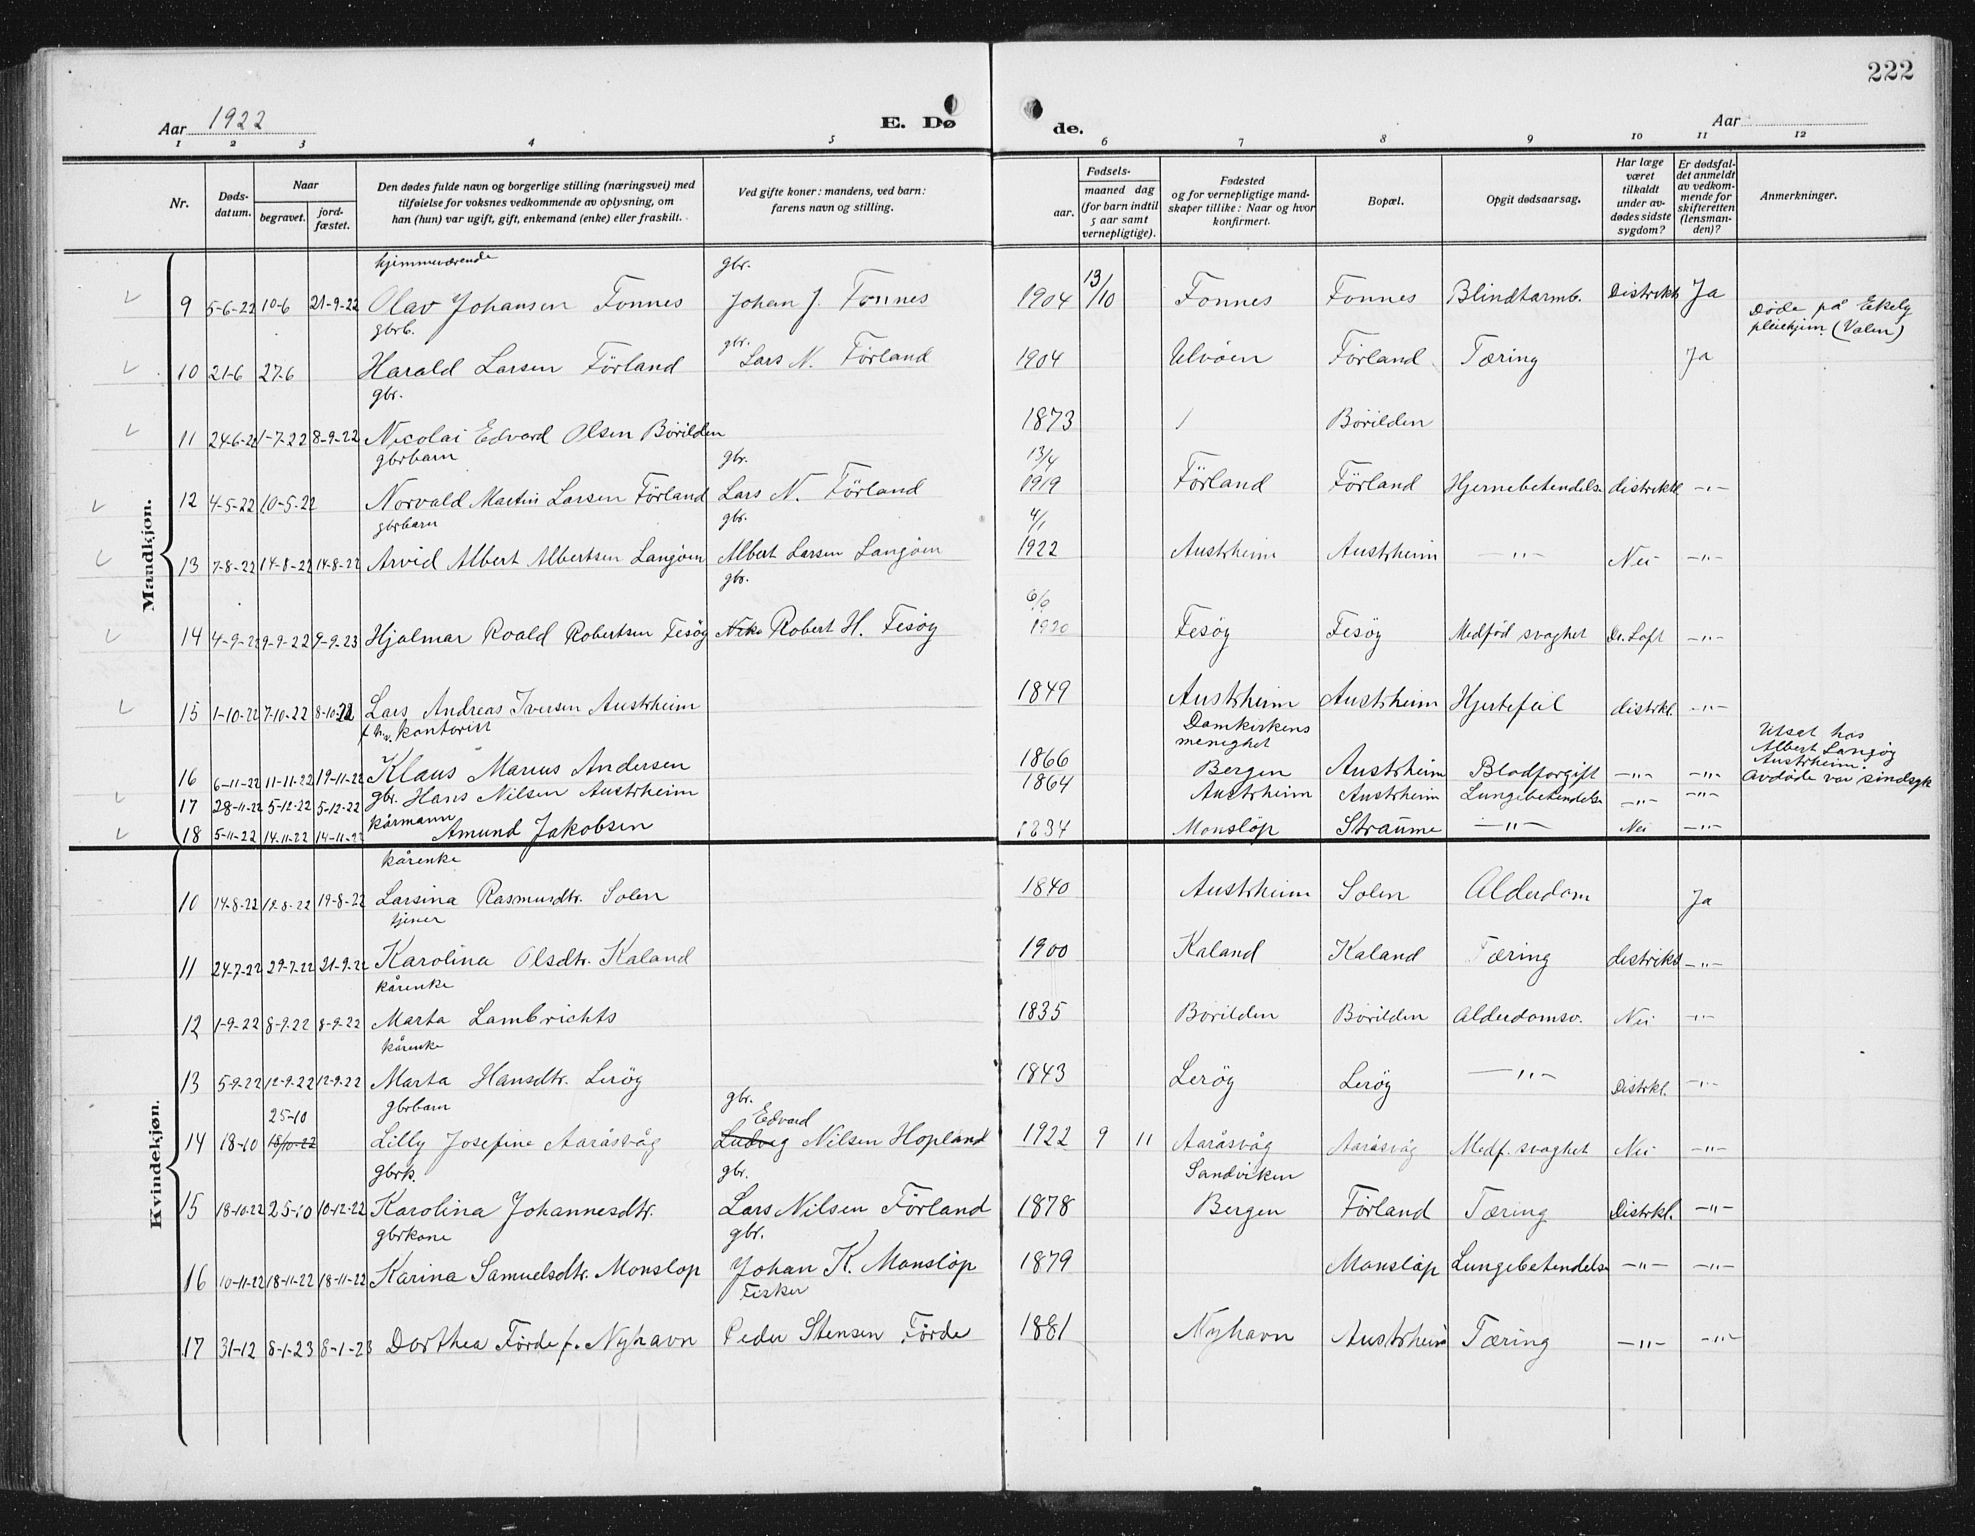 222
Aar 1922
E. Dø
de.
Aar
1 2 3 4 5 6 7 8 9 10 11 12
Nr.
Døds-
datum.
Naar
begravet.
jord-
fæstet.
Den dødes fulde navn og borgerlige stilling (næringsvei) med
tilføielse for voksnes vedkommende av oplysning, om
han (hun) var ugift, gift, enkemand (enke) eller fraskill.
Ved gifte koner: mandens, ved barn:
farens navn og stilling.
Fødsels-
aar.
maaned dag
(for barn indtil
5 aar samt
vernepligtige).
Fødested
og for vernepligtige mand-
skaper tillike: Naar og hvor
konfirmert.
Bopæl.
Opgit dødsaarsag.
Har læge
været
tilkaldt
under av-
dødes sidste
sygdom?
Er dødsfal-
det anmeldt
av vedkom-
mende for
skifteretten
(lensman-
den)?
Anmerkninger.
Mandkjøn.
hjemmeværende gbr. 13/10
9 5-6-22 10-6 21-9-22 Olav Johansen Fonnes Johan J. Fonnes 1904 Fonnes Fonnes Blindtarmb. Distrikts Ja
Døde på Eikely
pleiehjem. (Valen)
gbrb. gbr.
10 21-6 27-6 Harald Larsen Förland Lars N. Förland 1904 Ulvøen Förland Tæring Ja
gbr.
11 24-6-22 1-7-22 8-9-22 Nicolai Edvard Olsen Börilden 1873 Börilden
gbrbarn gbr. 13/4
12 4-5-22 10-5-22 Norvald Martin Larsen Förland Lars N. Förland 1919 Förland Förland Hjernebetendelse distriktl -"-
gbrbarn gbr. 4/1
13 7-8-22 14-8-22 14-8-22 Arvid Albert Albertsen Langöen Albert Larsen Langöen 1922 Austrheim Austrheim -"- Nei -"-
gbr.
14 4-9-22 9-9-22 9-9-23 Hjalmar Roald Robertsen Fesöy Robert H. Fesöy 1920 Fesöy Fesöy Medfød svaghet Dr. Loft -"-
15 1-10-22 7-10-22 8-10-22 Lars Andreas Iversen Austrheim 1849 Austrheim Austrheim Hjertefeil distrkl. -"-
f.h.v. kontorist Domkirkens
menighet
16 6-11-22 11-11-22 19-11-22 Klaus Marius Andersen 1866 Bergen Austrheim Blodforgift -"- -"-
Utsat hos
Albert Langöy
Austrheim.
Avdøde var sindsyk
17 28-11-22 5-12-22 5-12-22 gbr. Hans Nilsen Austrheim 1864 Austrheim Austrheim Lungebetendelse -"- -"-
kårmann
18 5-11-22 14-11-22 14-11-22 Amund Jakobsen 1834 Monslöp Straume -"- Nei -"-
Kvindekjøn.
kårenke
10 14-8-22 19-8-22 19-8-22 Larsina Rasmusdtr. Solen 1840 Austrheim Solen Alderdom Ja
tjener
11 24-7-22 29-7-22 21-9-22 Karolina Olsdtr. Kaland 1900 Kaland Kaland Tæring distrikts -"-
kårenke
12 1-9-22 8-9-22 8-9-22 Marta Lambrichts 1835 Börilden Börilden Alderdomsv. Nei -"-
kårenke
13 5-9-22 12-9-22 12-9-22 Marta Hansdtr. Leröy 1843 Leröy Leröy -"- Distrkl. -"-
25-10 gbrbarn gbr. Edvard
14 18-10 18/10-22 Lilly Josefine Aaråsvåg Ludvig Nilsen Hopland 1922 9 11 Aaråsvåg Aaråsvåg Medf. svaghet Nei -"-
gbrk. gbr. Sandviken
15 18-10-22 25-10 10-12-22 Karolina Johannesdtr. Lars Nilsen Förland 1878 Bergen Förland Tæring Distrkl. -"-
gbrkone gbr.
16 10-11-22 18-11-22 18-11-22 Karina Samuelsdtr. Monslop Johan K. Monslöp 1879 Monslöp Lungebetendelse -"- -"-
Fisker
17 31-12 8-1-23 8-1-23 Dorthea Förde f. Nyhavn Peder Stensen Förde 1881 Nyhavn Austrheim Tæring -"- -"-